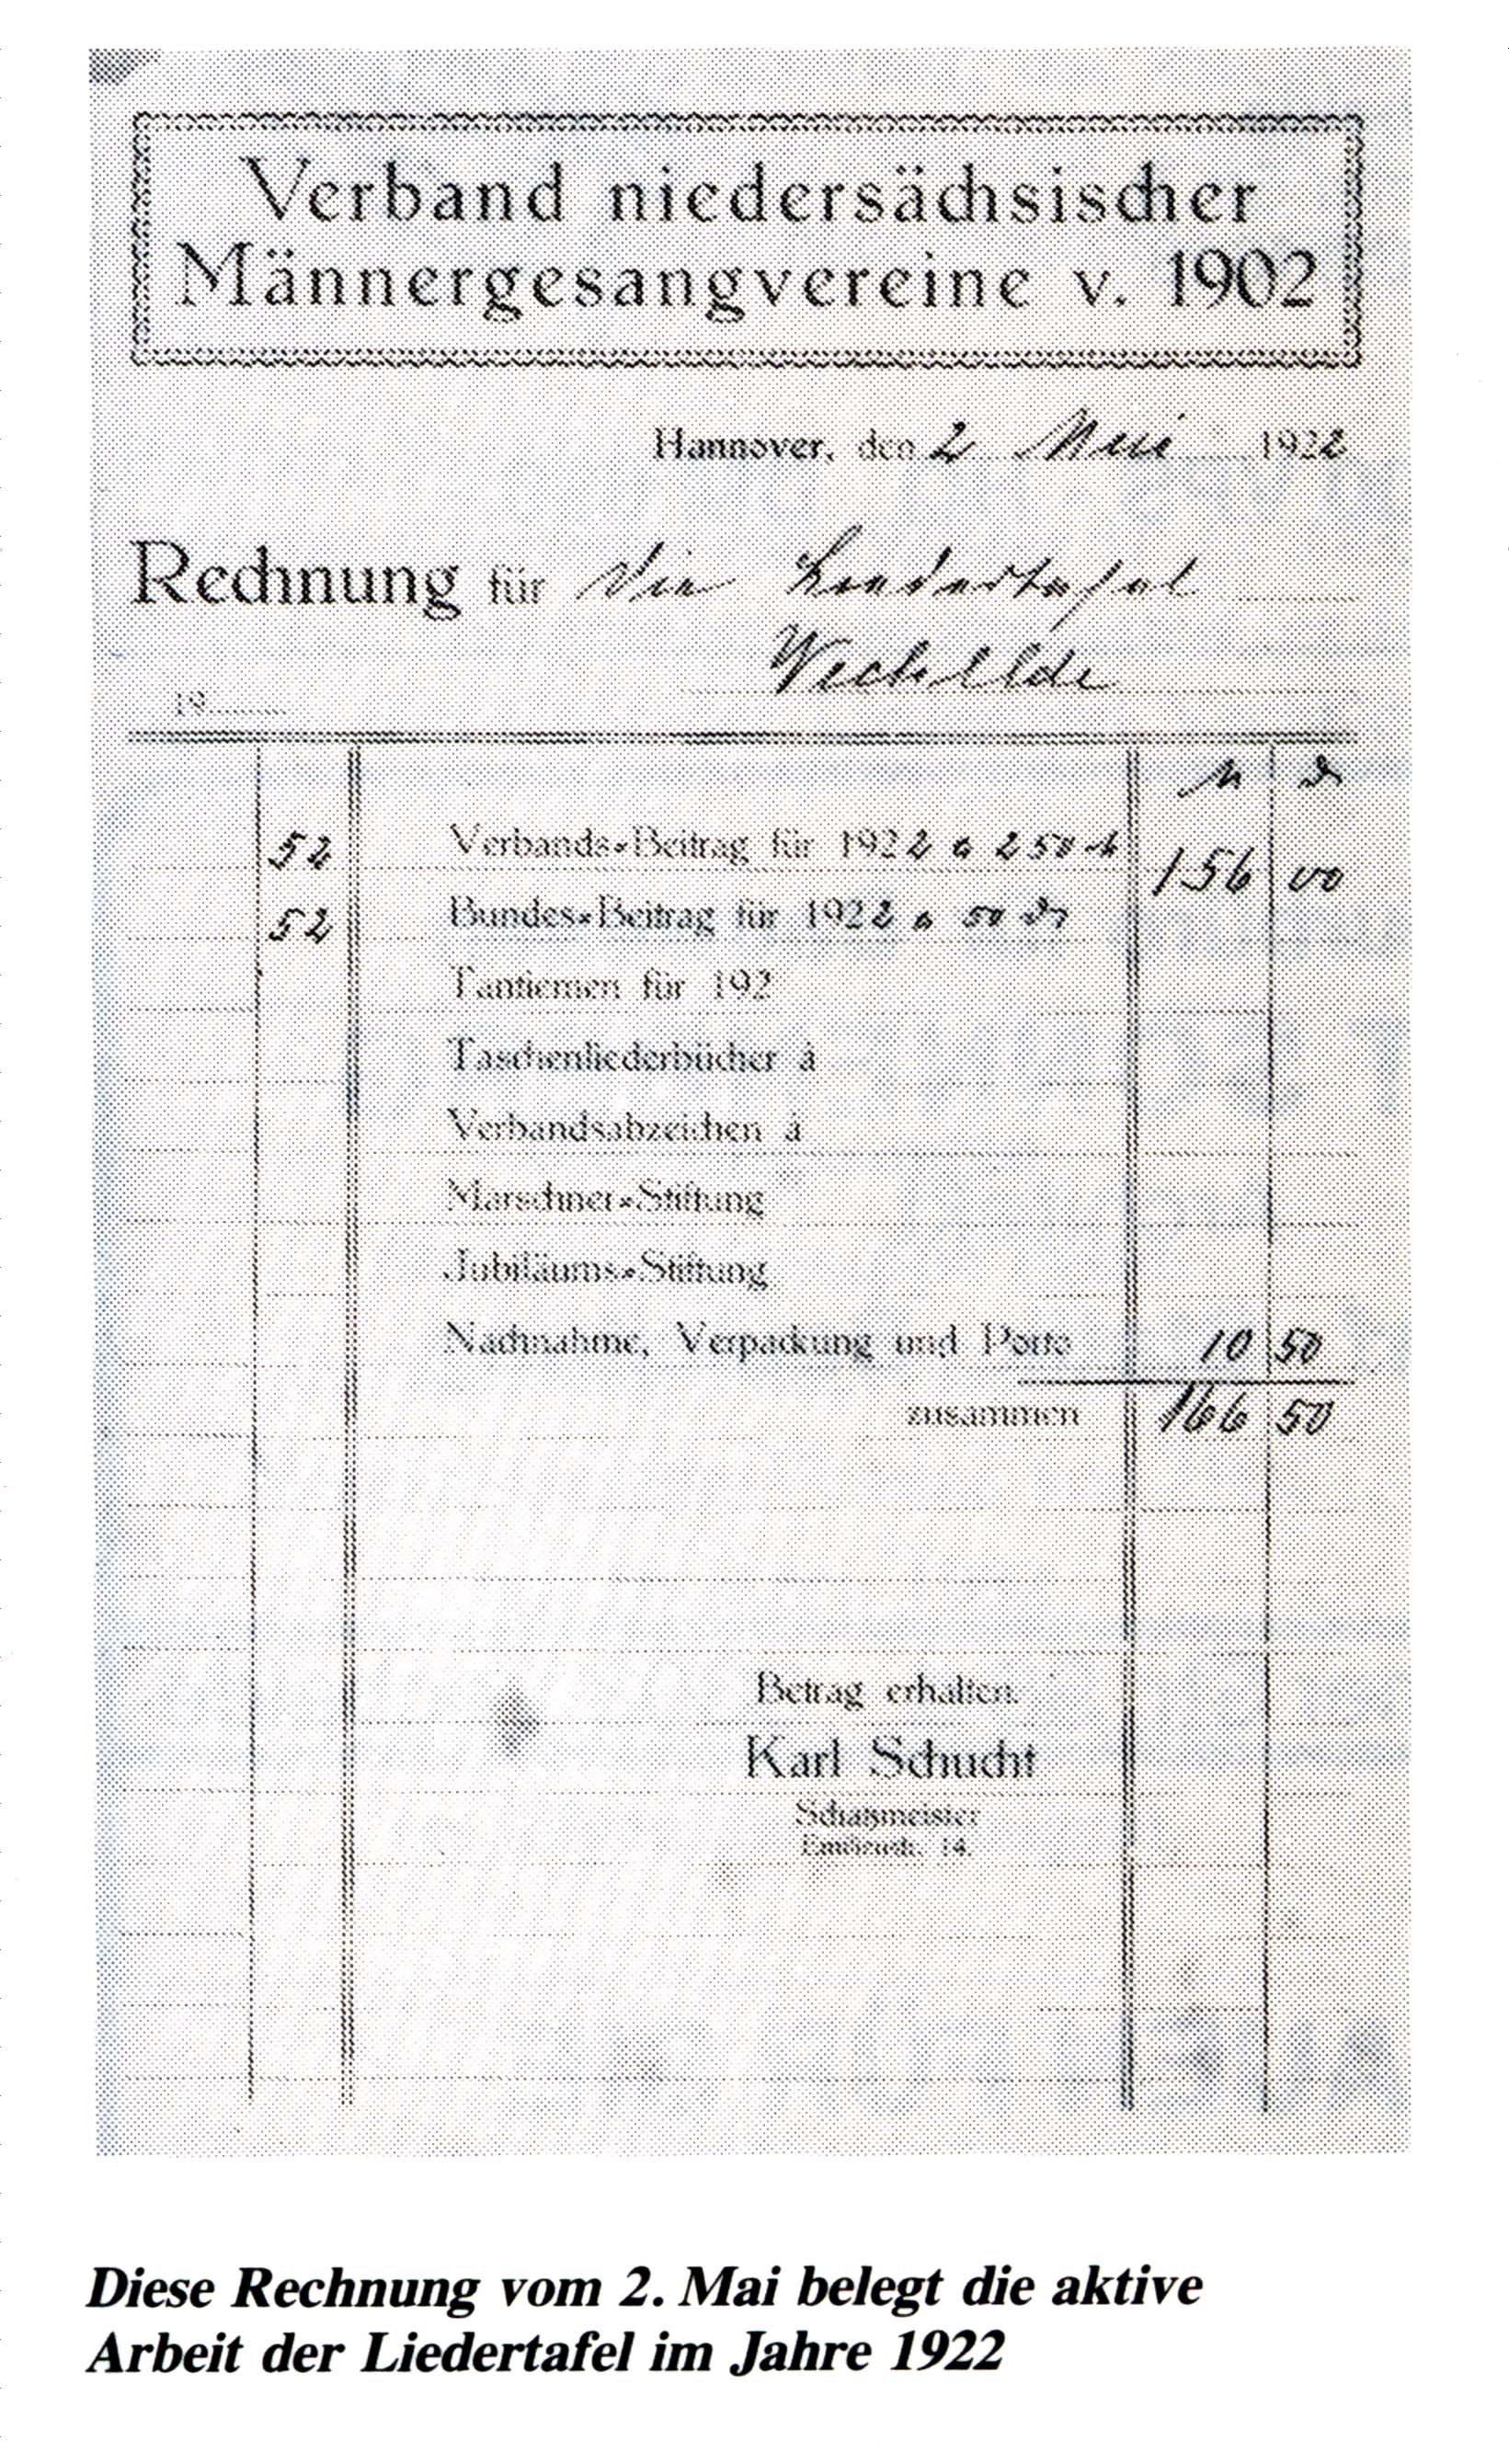 Verband niedersächsischer
Männergesangvereine v. 1902
Hannover, den 2 Mai 1922
Rechnung für die Liedertafel
Vechelde
19
M ₰
52 Verbands-Beitrag für 1922 a 2 50 M 156 00
52 Bundes-Beitrag für 1922 a 50 ₰
Tantiemen für 192
Taschenliederbücher à
Verbandsabzeichen à
Marschner-Stiftung
Jubiläums-Stiftung
Nachnahme, Verpackung und Porto 10 50
zusammen 166 50
Betrag erhalten.
Karl Schucht
Schatzmeister
14.
Diese Rechnung vom 2. Mai belegt die aktive
Arbeit der Liedertafel im Jahre 1922